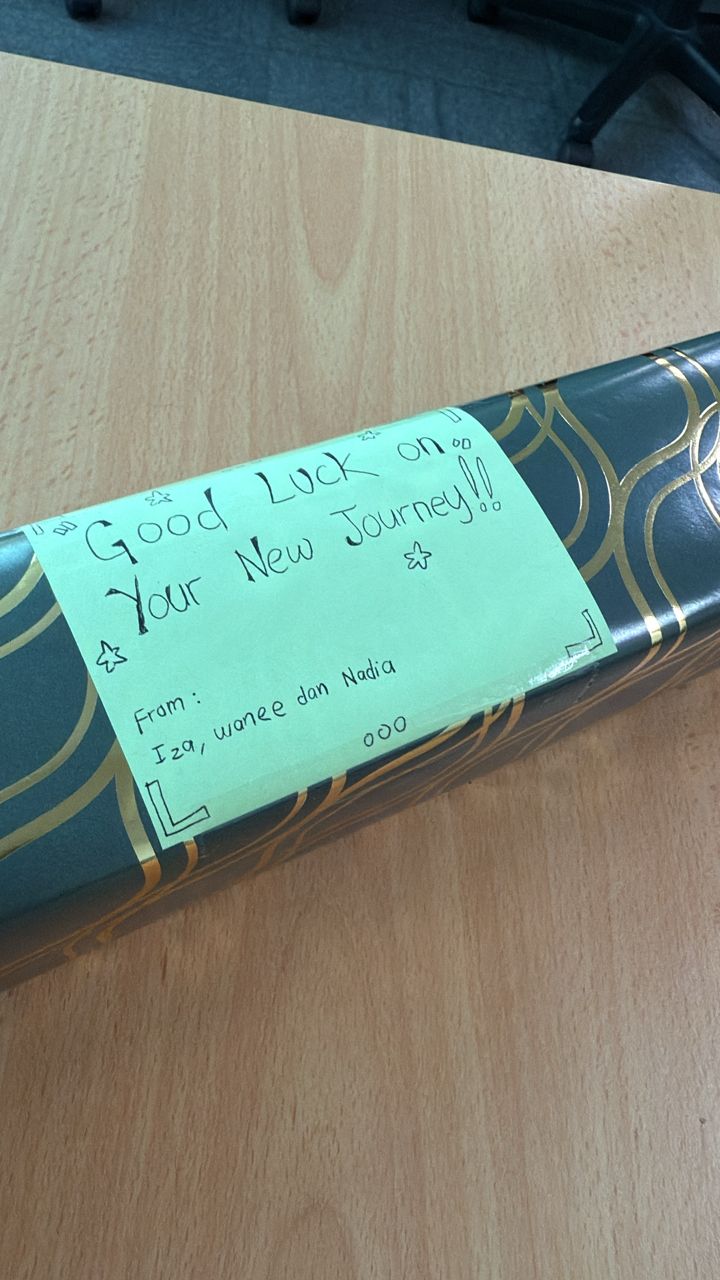 Good Luck on
Your New Journey!!
From :
Iza, wanee dan Nadia